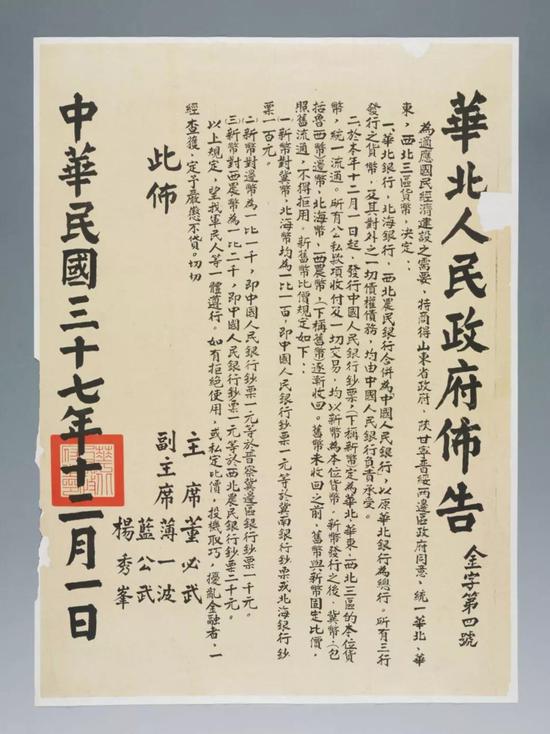 華北人民政府佈告
金字第四號
為適應國民經濟建設之需要，特商得山東省政府，陝甘寧晉綏兩邊區政府同意，統一華北、華
東，西北三區貨幣，決定：
一、華北銀行，北海銀行，西北農民銀行合併為中國人民銀行，以原華北銀行為總行。所有三行
發行之貨幣，及其對外之一切債權債務，均由中國人民銀行負責承受。
二、於本年十二月一日起，發行中國人民銀行鈔票，（下稱新幣）定為華北、華東、西北三區的本位貨
幣，統一流通。所有公私款項收付及一切交易，均以新幣為本位貨幣。新幣發行之後，冀幣（包
括魯西幣）邊幣，北海幣，西農幣，（下稱舊幣）逐漸收回。舊幣未收回之前，舊幣與新幣固定比價，
照舊流通，不得拒用。新舊幣比價規定如下：
㈠新幣對冀幣，北海幣均為一比一百，即中國人民銀行鈔票一元等於冀南銀行鈔票或北海銀行鈔
票一百元。
㈡新幣對邊幣為一比一千，即中國人民銀行鈔票一元等於晉察冀邊區銀行鈔票一千元。
㈢新幣對西農幣為一比二千，即中國人民銀行鈔票一元等於西北農民銀行鈔票二千元。
以上規定，望我軍民人等一體遵行。如有拒絕使用，或私定比價，投機取巧，擾亂金融者，一
經查獲，定予嚴懲不貸。切切
此佈
主席 董必武
副主席 薄一波
藍公武
楊秀峯
中華民國三十七年十二月一日